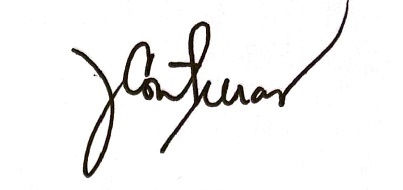 J Contreras